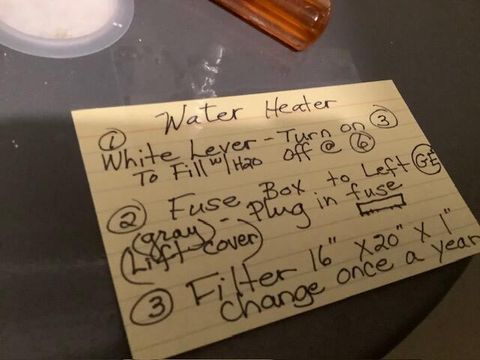 Water Heater
① White Lever - Turn on @ ③
To Fill w/ H20 off @ ⑥
② Fuse Box to Left GE
(gray) - plug in fuse
(Lift cover)
③ Filter 16" x 20" x 1"
change once a year